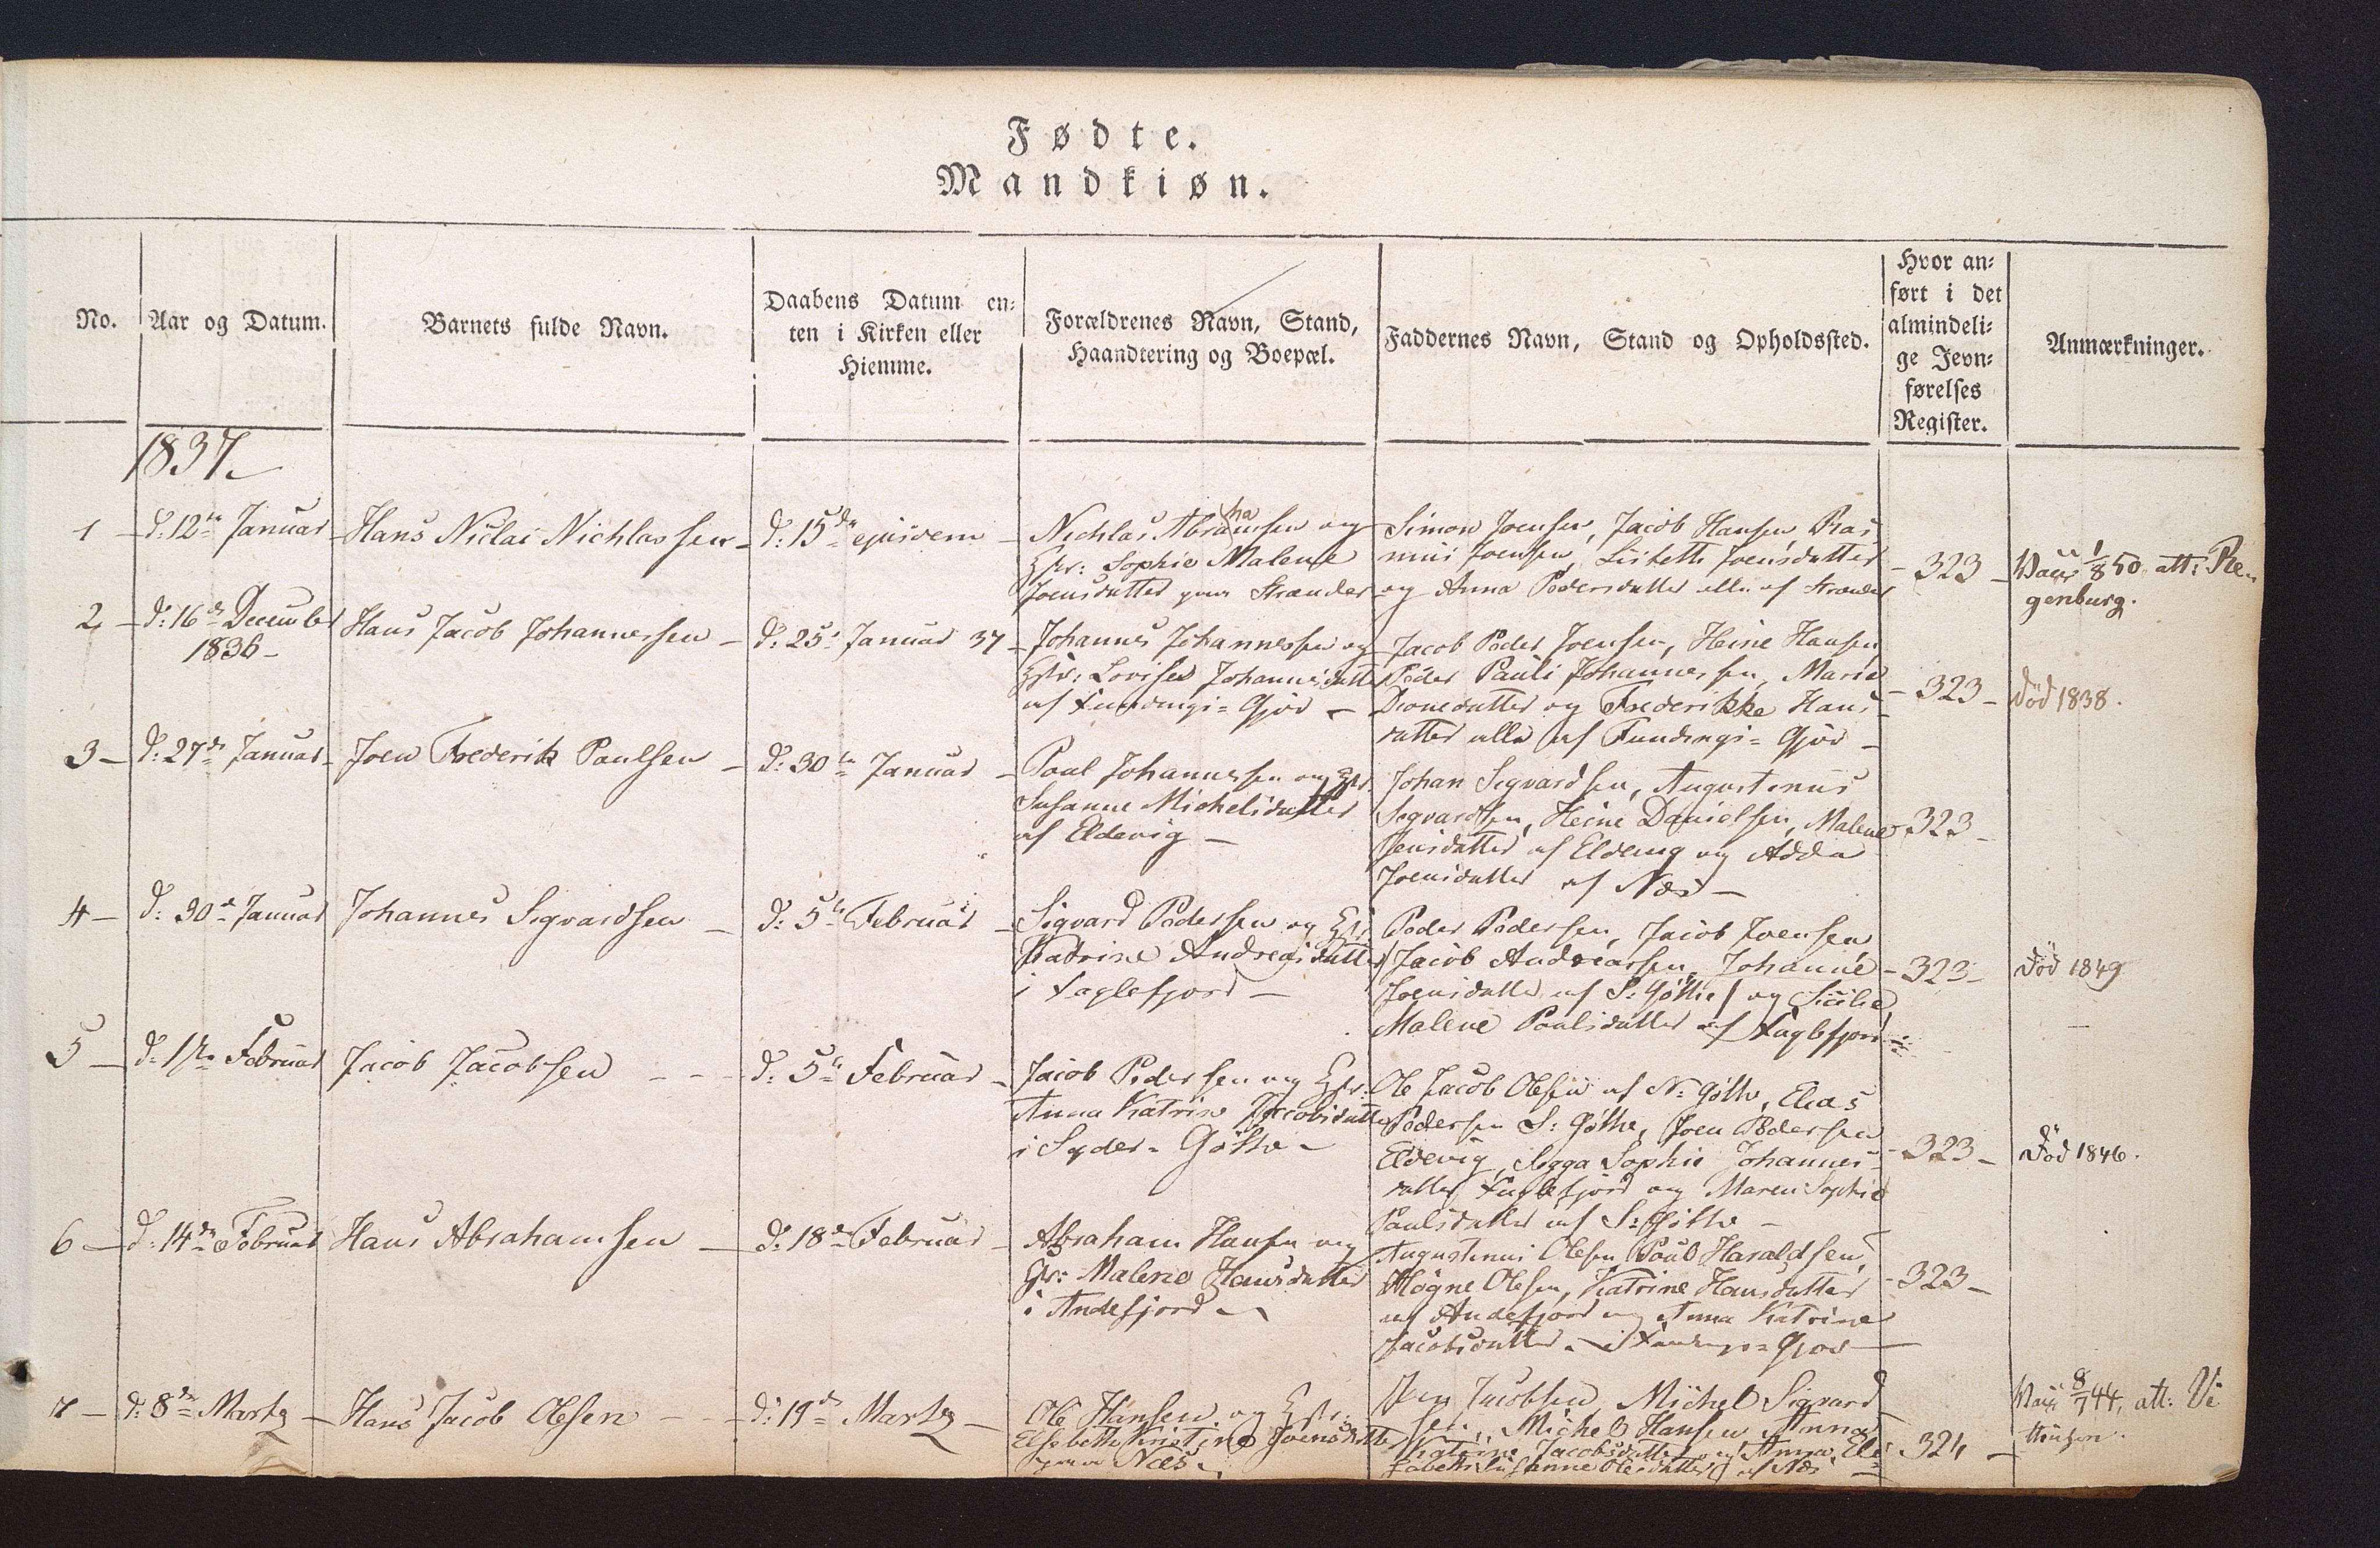 Fødte.
Mandkiøn.
No.
Aar og Datum.
Barnets fulde Navn.
Daabens Datum en-
ten i Kirken eller
Hiemme.
Forældrenes Navn, Stand,
Haandtering og Boepæl.
Faddernes Navn, Stand og Opholdssted.
Hvor an-
ført i det
almindeli-
ge Jevn-
førelses
Register.
Anmærkninger.
1837
1 - d: 12te Januar
Hans Niclai Nichlassen
d: 15de ejusdem
Nichlas Abrahamsen og
Hstr: Sophie Malene
Joensdatter paa Strænder
Simon Joensen, Jacob Hansen, Ras
mus Joensen, Lisbeth Joensdatter
og Anna Pedersdatter alle af Strænder
323
Vacc 1/8 50. att: Re-
genburg.
2 - d: 16de December
1836 -
Hans Jacob Johannessen
d: 25 Januar 37
Johannes Johannessen og
Hstr: Lovise Johannisdatter
af Fundings-Gjov
Jacob Peder Joensen, Heine Hansen
Peder Pauli Johannessen, Maria
Dionedatter og Frederikke Hans
datter alle af Fundings-Gjov -
323
død 1838.
3 - d: 27de Januar
Joen Frederik Paulsen
d: 30te Januar
Poul Johannessen og Hstr
Susanne Michelsdatter
af Eldevig -
Johan Sigvardsen, Augustinus
Sigvardsen, Heine Danielsen, Malene
Jensdatter af Eldevig og Adda
Joensdatter af Næs -
323
4 - d: 30te Januar
Johannes Sigvardsen
d: 5te Februar
Sigvard Pedersen og Hstr
Katrine Andreasdatter
i Fuglefjord -
Peder Pedersen, Jacob Joensen
Jacob Andreassen, Johanne
Joensdatter af S: Gøthe og Sicilie
Malene Poulsdatter af Fuglefjord
323
død 1849
5 - d: 1te Februar
Jacob Jacobsen
d: 5te Februar
Jacob Pedersen og Hstr:
Anna Katrine Jacobsdatter
i Syder-Gøthe -
Ole Jacob Olesen af N: Gøthe, Elias
Pedersen S: Gøthe, Joen Pedersen
Eldevig, Sigga Sophie Johannes-
datter Fuglefjord og Maren Sophie
Paulsdatter af S: Gøthe -
323
død 1846.
6 - d: 14de Februar
Hans Abrahamsen
d: 18de Februar
Abraham Hansen og
Hstr: Malene Hansdatter
i Andefjord
Augustinus Olesen, Poul Haraldsen,
Høgne Olesen, Katrine Hansdatter
af Andefjord og Anna Katrine
Jacobsdatter i Fundings-Gjov
323
7 - d: 8de Martz
Hans Jacob Olesen
d: 19de Martz
Ole Hansen og Hstr:
Elsebeth Kristine Joensdatter
paa Næs
Jacobsen, Michel Sigvard
sen, Michel Hansen, Anna
Katrine Jacobsdatter og Anna Eli-
sabeth Susanne Olesdatter af Næs
324
Vacc 8/7 44, att: